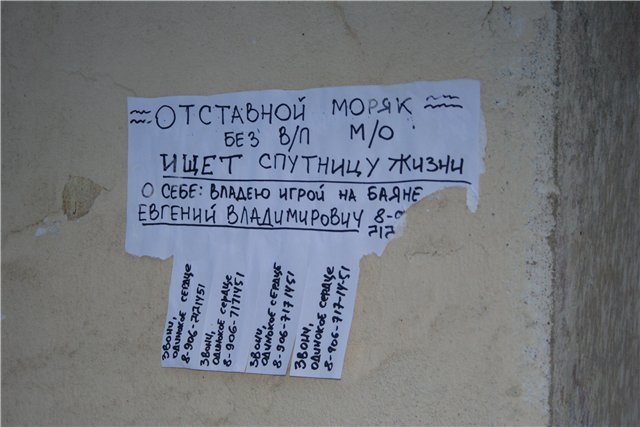 ≈ ОТСТАВНОЙ МОРЯК ≈
БЕЗ В/П М/О
ИЩЕТ СПУТНИЦУ ЖИЗНИ
О СЕБЕ: ВЛАДЕЮ ИГРОЙ НА БАЯНЕ
ЕВГЕНИЙ ВЛАДИМИРОВИЧ 8-9
717
ЗВОНИ,
ОДИНОКОЕ СЕРДЦЕ
8-906-7171451
ЗВОНИ,
ОДИНОКОЕ СЕРДЦЕ
8-906-7171451
ЗВОНИ,
ОДИНОКОЕ СЕРДЦЕ
8-906-7171451
ЗВОНИ,
ОДИНОКОЕ СЕРДЦЕ
8-906-717-14-51